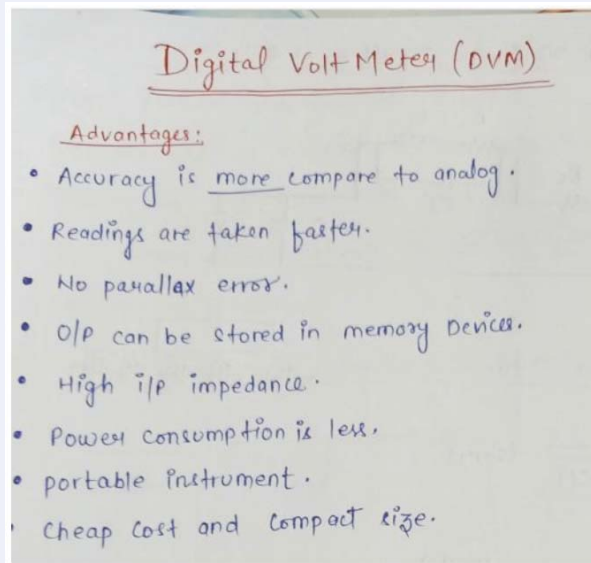 Digital Volt Meter (DVM)
Advantages:
• Accuracy is more compare to analog.
• Readings are taken faster.
• No parallax error.
• O/P can be stored in memory Devices.
• High i/p impedance.
• Power consumption is less.
• portable instrument.
• Cheap cost and compact size.